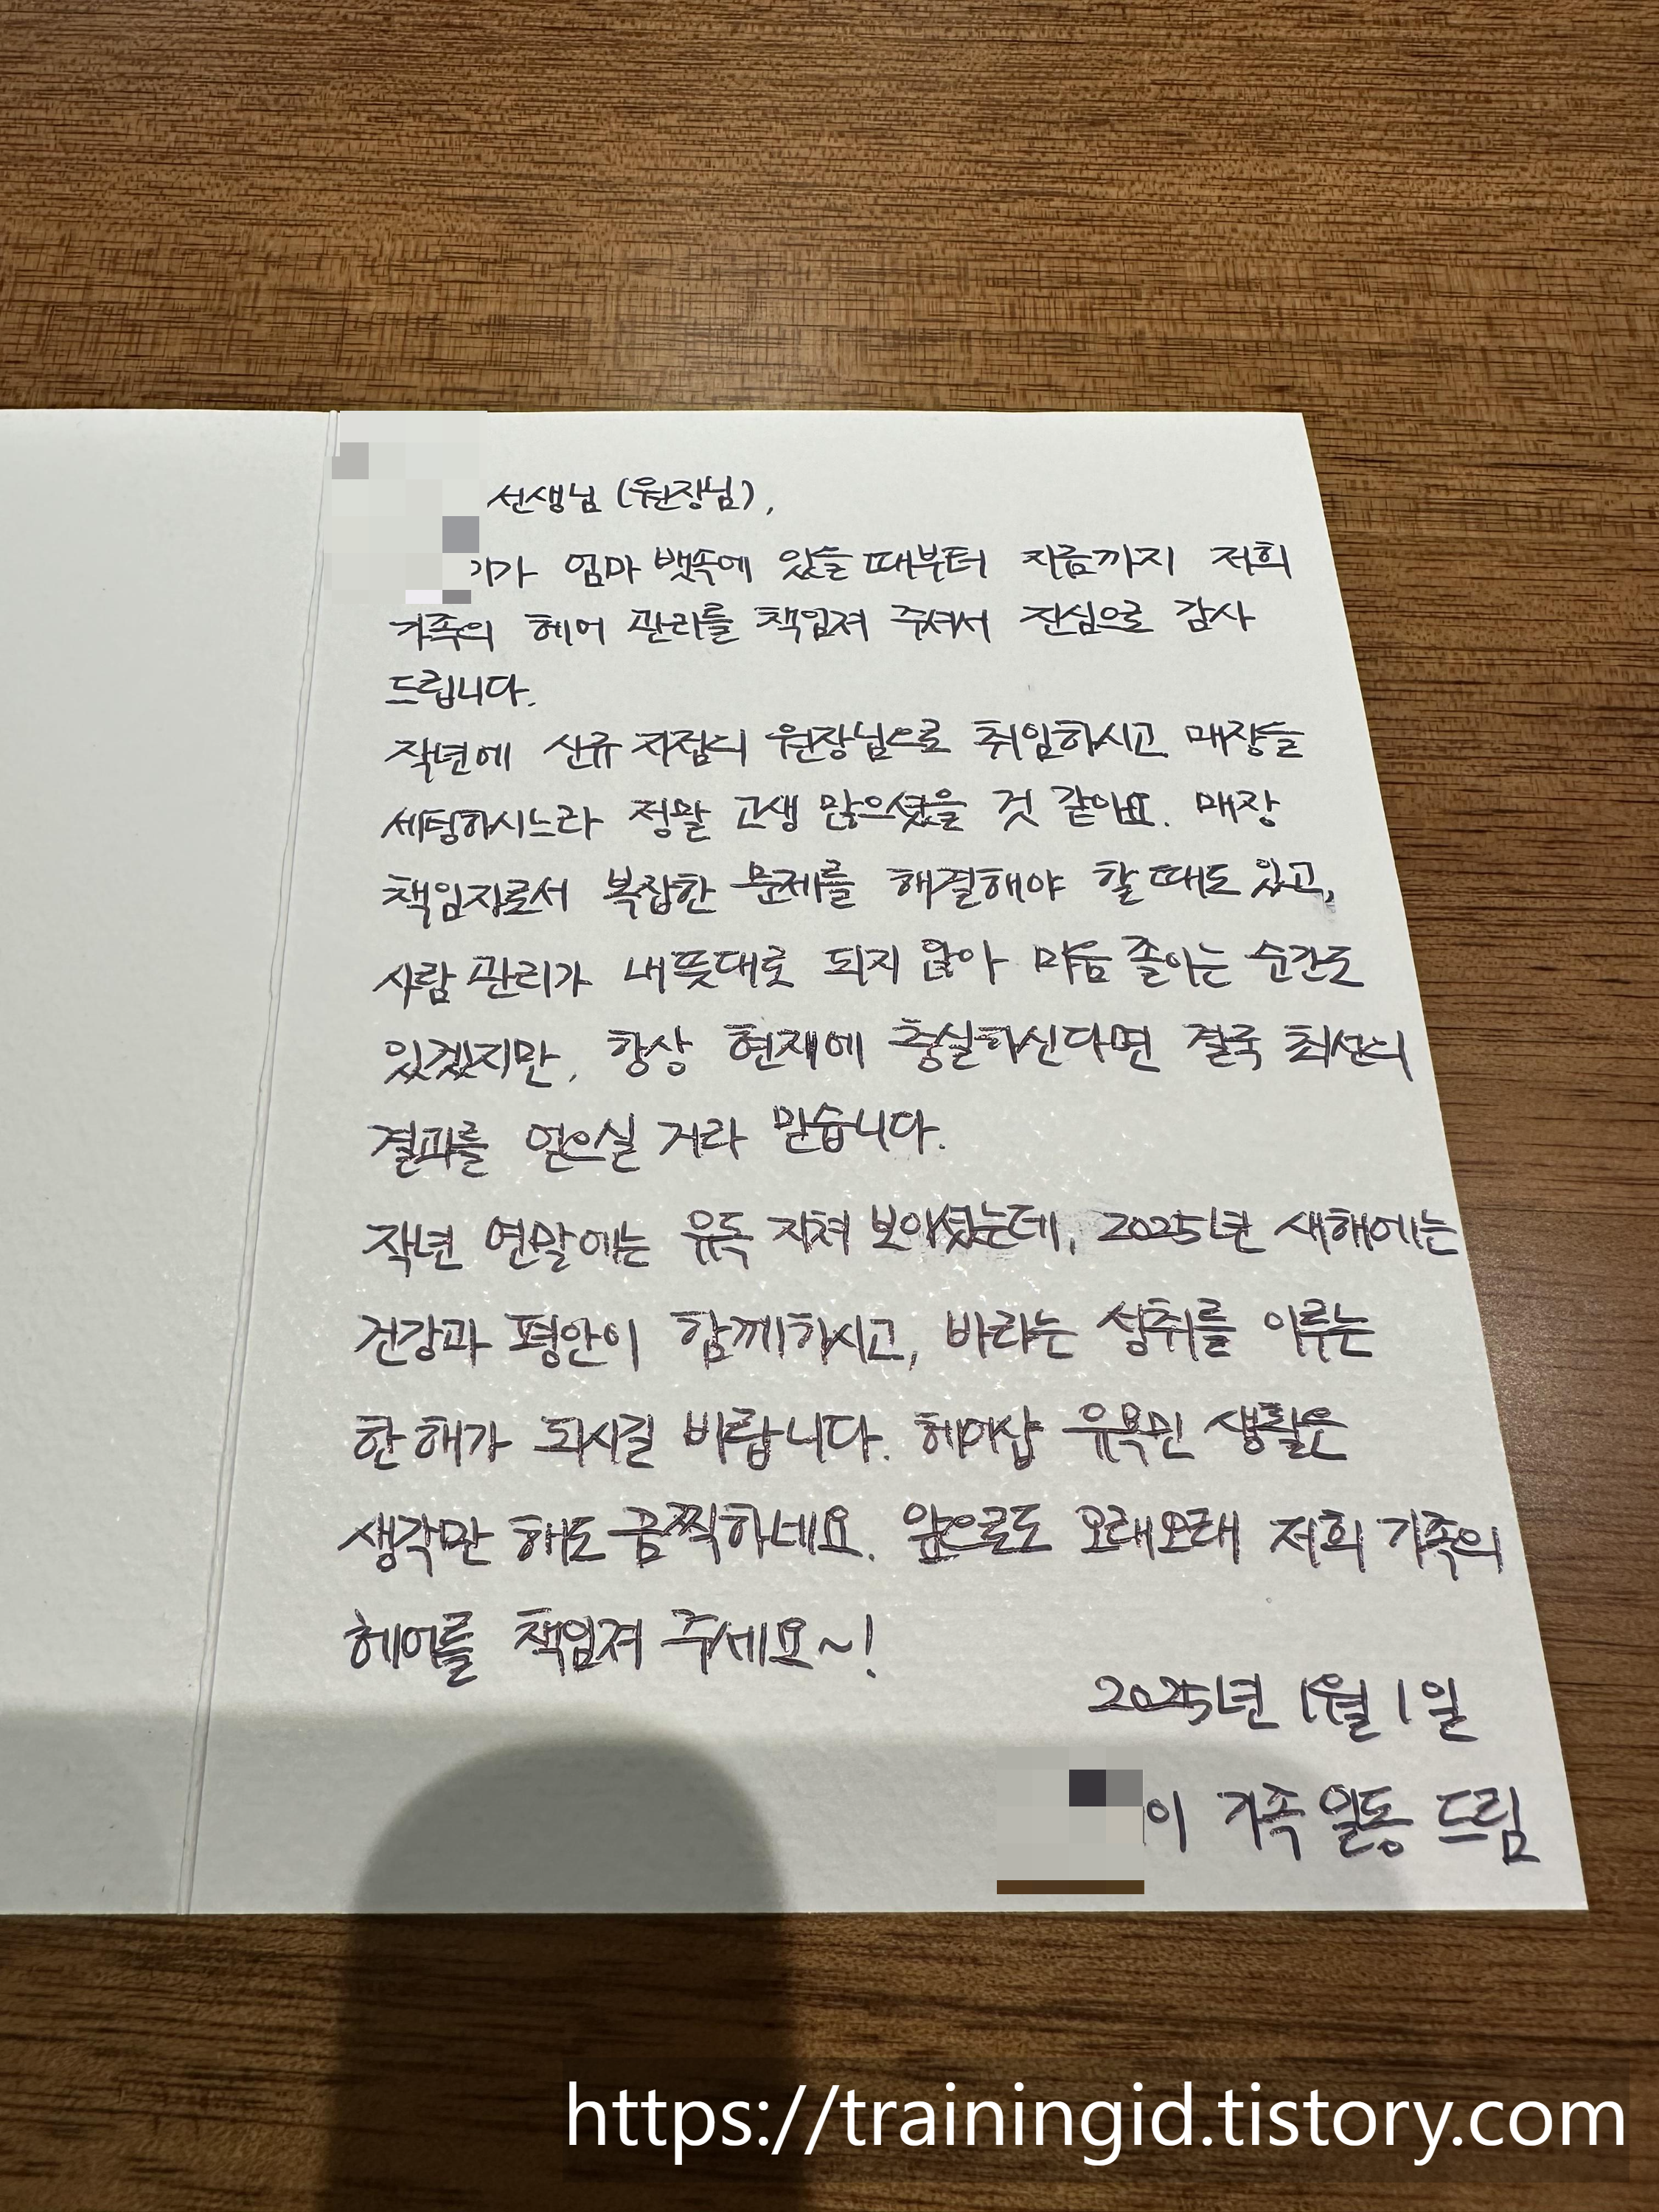 선생님 (원장님),
가 엄마 뱃속에 있을 때부터 지금까지 저희
가족의 헤어 관리를 책임져 주셔서 진심으로 감사
드립니다.
작년에 신규 지점의 원장님으로 취임하시고 매장을
세팅하시느라 정말 고생 많으셨을 것 같아요. 매장
책임자로서 복잡한 문제를 해결해야 할 때도 있고,
사람 관리가 내 뜻대로 되지 않아 마음 졸이는 순간도
있겠지만, 항상 현재에 충실하신다면 결국 최선의
결과를 얻으실 거라 믿습니다.
작년 연말에는 유독 지쳐 보이셨는데, 2025년 새해에는
건강과 평안이 함께하시고, 바라는 성취를 이루는
한 해가 되시길 바랍니다. 헤어샵 유목민 생활은
생각만 해도 끔찍하네요. 앞으로도 오래오래 저희 가족의
헤어를 책임져 주세요~!
2025년 1월 1일
이 가족 일동 드림
https://trainingid.tistory.com